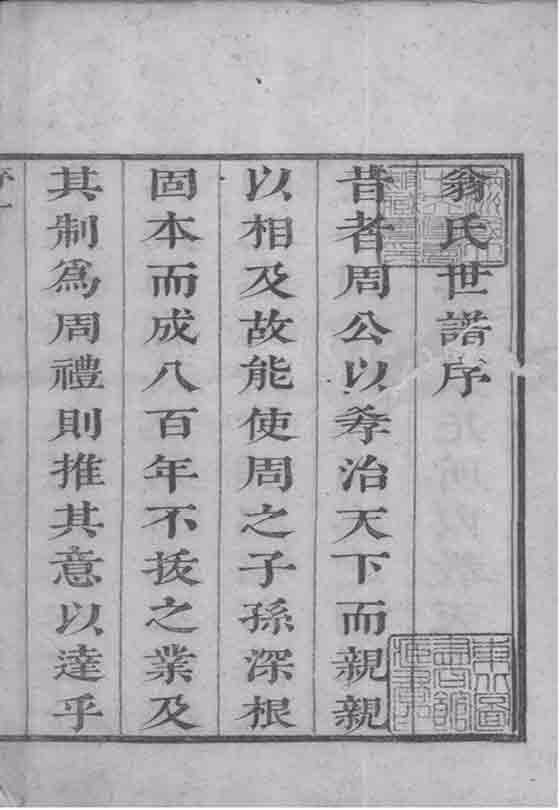 翁氏世譜序
昔者周公以孝治天下而親親
以相及故能使周之子孫深根
固本而成八百年不拔之業及
其制爲周禮則推其意以達乎